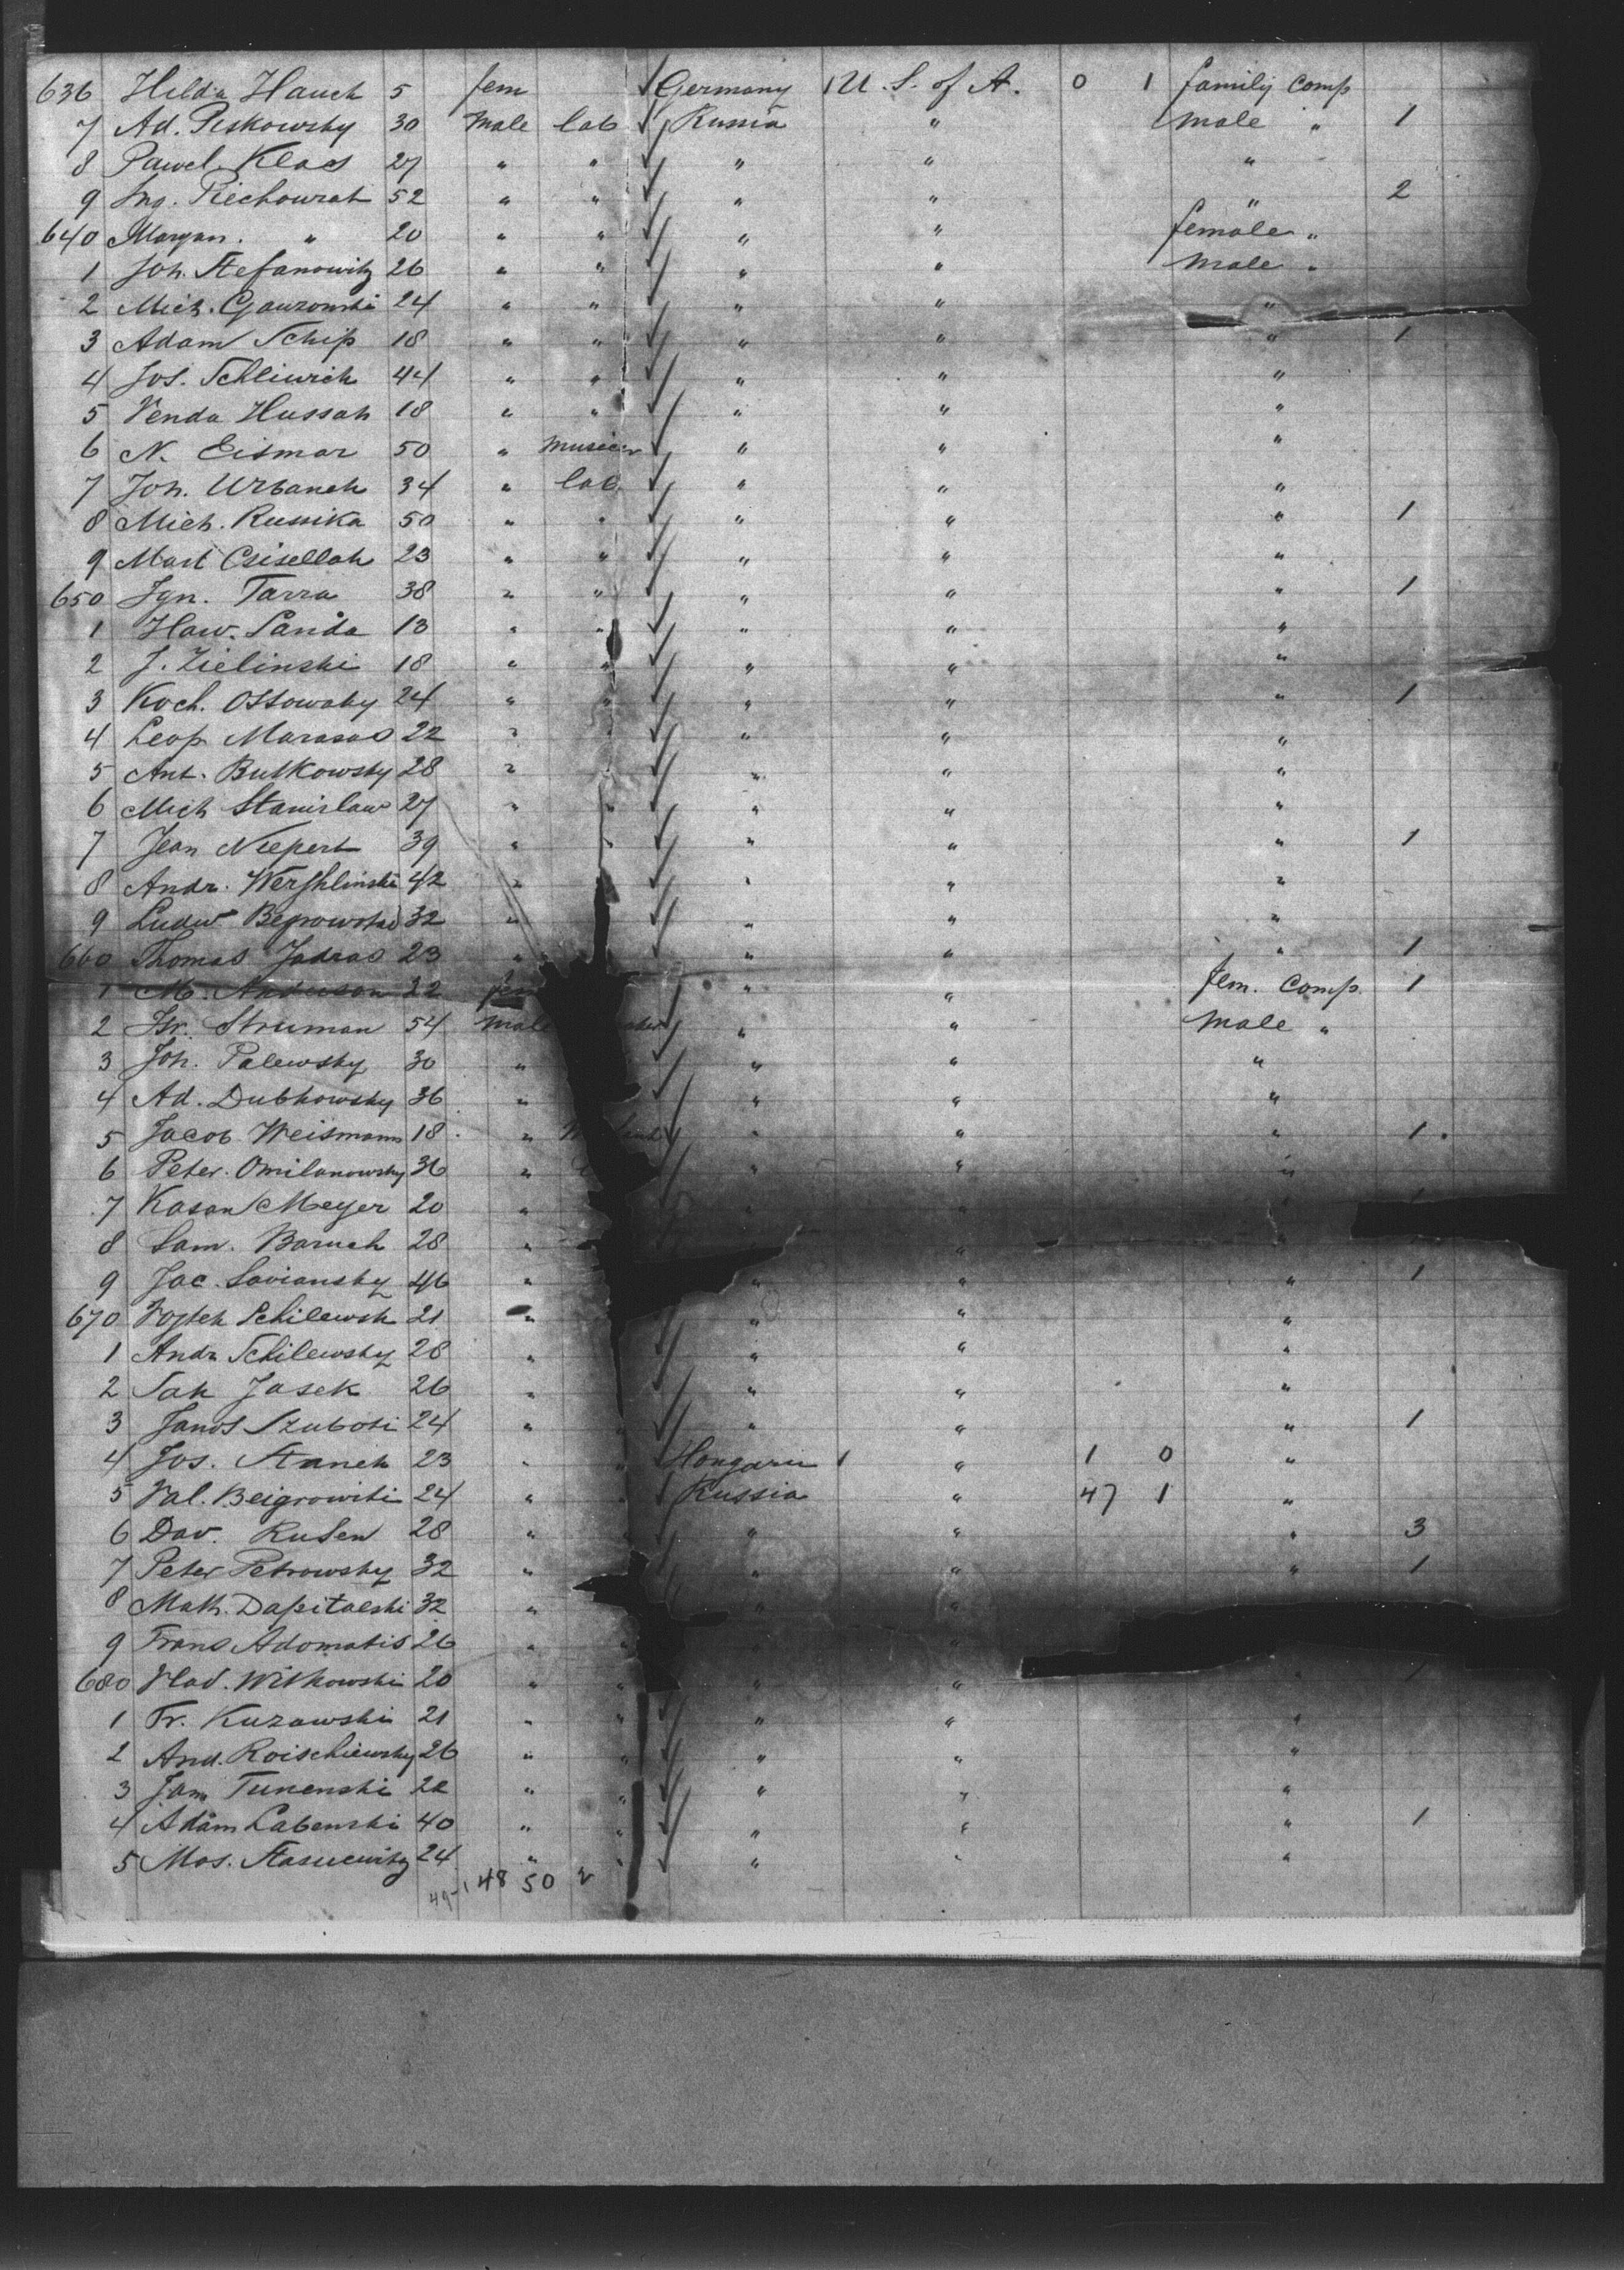 636 Hilda Hauch 5 fem Germany 1 U. S. of A. 0 1 family comp
7 Ad. Piskowsky 30 Male lab Russia " male " 1
8 Pawel Klaos 27 " " " " "
9 Ing. Piechowrat 52 " " " " " 2
640 Maryan. " 20 " " " " female "
1 Joh. Stefanowitz 26 " " " " Male "
2 Mich. Gawzonski 24 " " " " "
3 Adam Schip 18 " " " " " 1
4 Jos. Schliwich 44 " " " " "
5 Venda Hussah 18 " " " " "
6 N. Eismar 50 " " " "
7 Joh. Urbanek 34 " lab. " " "
8 Mich. Russika 50 " " " " " 1
9 Mart Csisellak 23 " " " " "
650 Ign. Tarra 38 " " " " " 1
1 Haw. Sanda 13 " " " " "
2 J. Zielinski 18 " " " " "
3 Koch. Ossowaky 24 " " " " " 1
4 Leop Marasas 22 " " " " "
5 Ant. Butkowsky 28 " " " " "
6 Mich Stanislaw 27 " " " " "
7 Jean Niepert 39 " " " " " 1
8 Andr. 42 " " " "
9 Ludw 32 " " " "
660 Thomas Jadras 23 " " " " 1
1 M. Anderson 22 fem " " fem. comp 1
2 Struman 54 Male " " Male "
3 Joh. Palewsky 30 " " " "
4 Ad. Dubkowsky 36 " " " "
5 Jacob Weismann 18 " " " " 1
6 Peter Omilanowsky 36 " " " "
7 Kasan Meyer 20 " " "
8 Sam. Baruch 28 " "
9 Jac. Soviansky 46 " " " " 1
670 Vojtek Schilewsk 21 " " " "
1 Andr Schilewsky 28 " " " "
2 Sak Jasek 26 " " " "
3 Janos Szubosi 24 " " " " 1
4 Jos. Stanek 23 " " Hongarie 1 " 1 0 "
5 Val. Beigrowski 24 " " Russia " 47 1 "
6 Dav. Rusen 28 " " " " " 3
7 Peter Petrowsky 32 " " " " 1
8 Math. Dapitalski 32 " " "
9 Frans Adomatis 26 " " "
680 Vlad. Witkowski 20 " " " " " 1
1 Fr. Kuzawski 21 " " " " "
2 And. Roischiewsky 26 " " " " "
3 Jam Tunenski 22 " " " " "
4 Adam Labenski 40 " " " " " 1
5 Mos. Stasuewitz 24 " " " " "
49-1 48 50 2